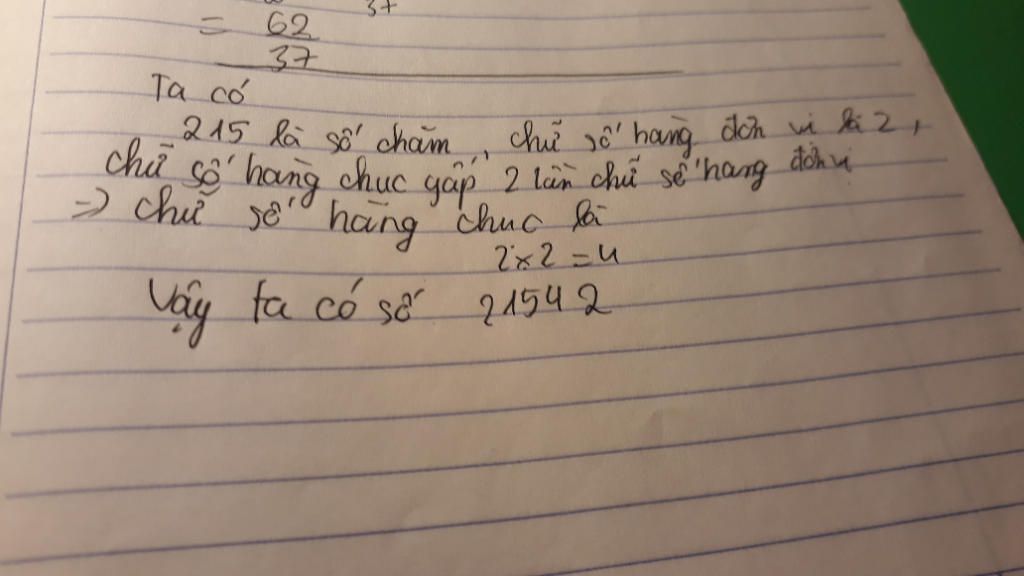 37
= 62
37
Ta có
215 là số chăm, chữ số hàng đơn vi là 2,
chữ số hàng chuc gấp 2 lần chữ số hang đơn vi
=> chữ số hàng chuc là
2 x 2 = 4
Vậy ta có số 21542